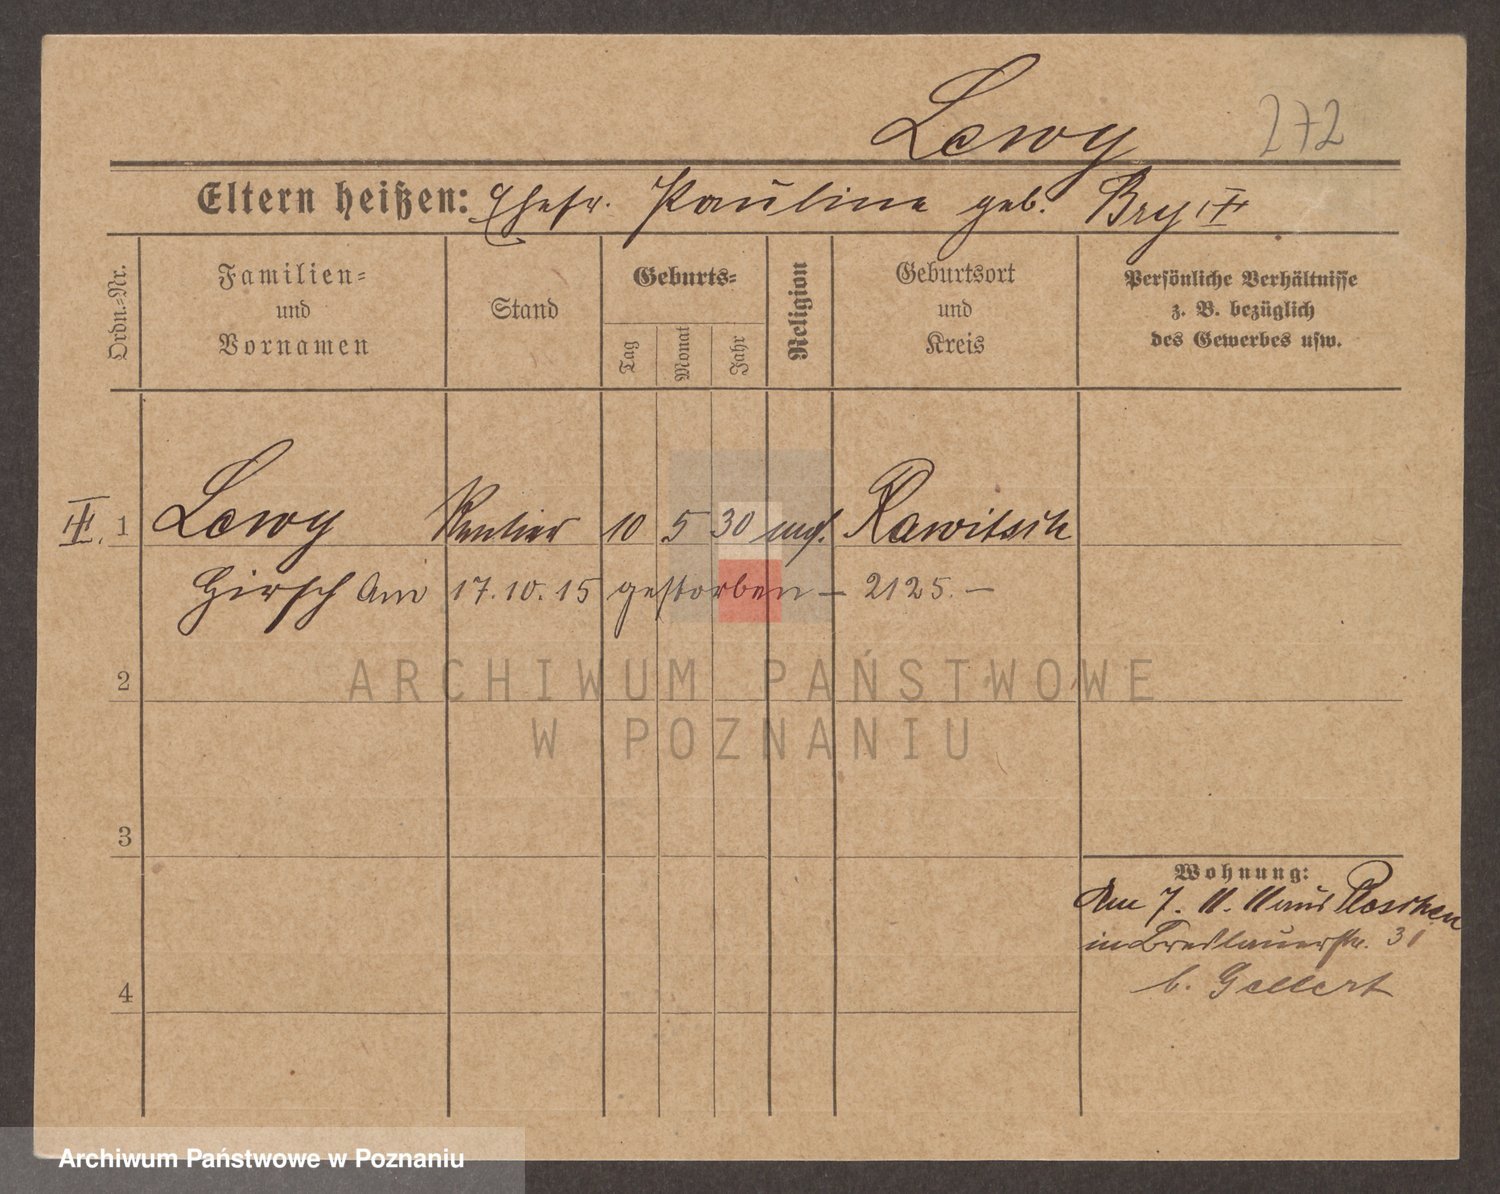 Lewy 272
Eltern heißen: Ehefr. Pauline geb. Bry
Ordn.=Nr.
Familien=
und
Vornamen
Stand
Geburts=
Tag
Monat
Jahr
Religion
Geburtsort
und
Kreis
Persönliche Verhältnisse
z. B. bezüglich
des Gewerbes usw.
1 Lewy Rentier 10 5 30 Rawitsch
Hirsch Am 17.10.15 gestorben – 2125. –
2
3
4
Wohnung:
Am 7. 11. 11 aus Pleschen
in Breslauerstr. 31
b. Gellert
ARCHIWUM PAŃSTWOWE
W POZNANIU
Archiwum Państwowe w Poznaniu